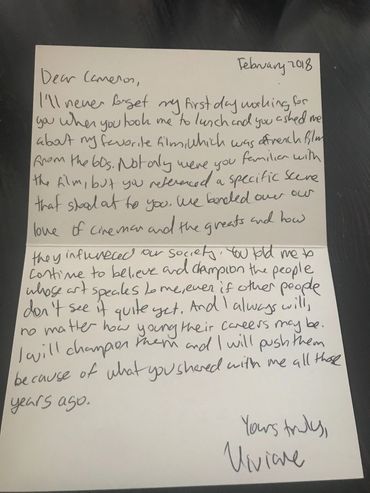 February 2018
Dear Cameron,
I'll never forget my first day working for
you when you took me to lunch and you asked me
about my favorite film, which was a french film
from the 60s. Not only were you familiar with
the film, but you referenced a specific scene
that stood out to you. We bonded over our
love of cinema and the greats and how
they influenced our society. You told me to
continue to believe and champion the people
whose art speaks to me, even if other people
don't see it quite yet. And I always will,
no matter how young their careers may be.
I will champion them and I will push them
because of what you shared with me all those
years ago.
Yours truly,
Viviane